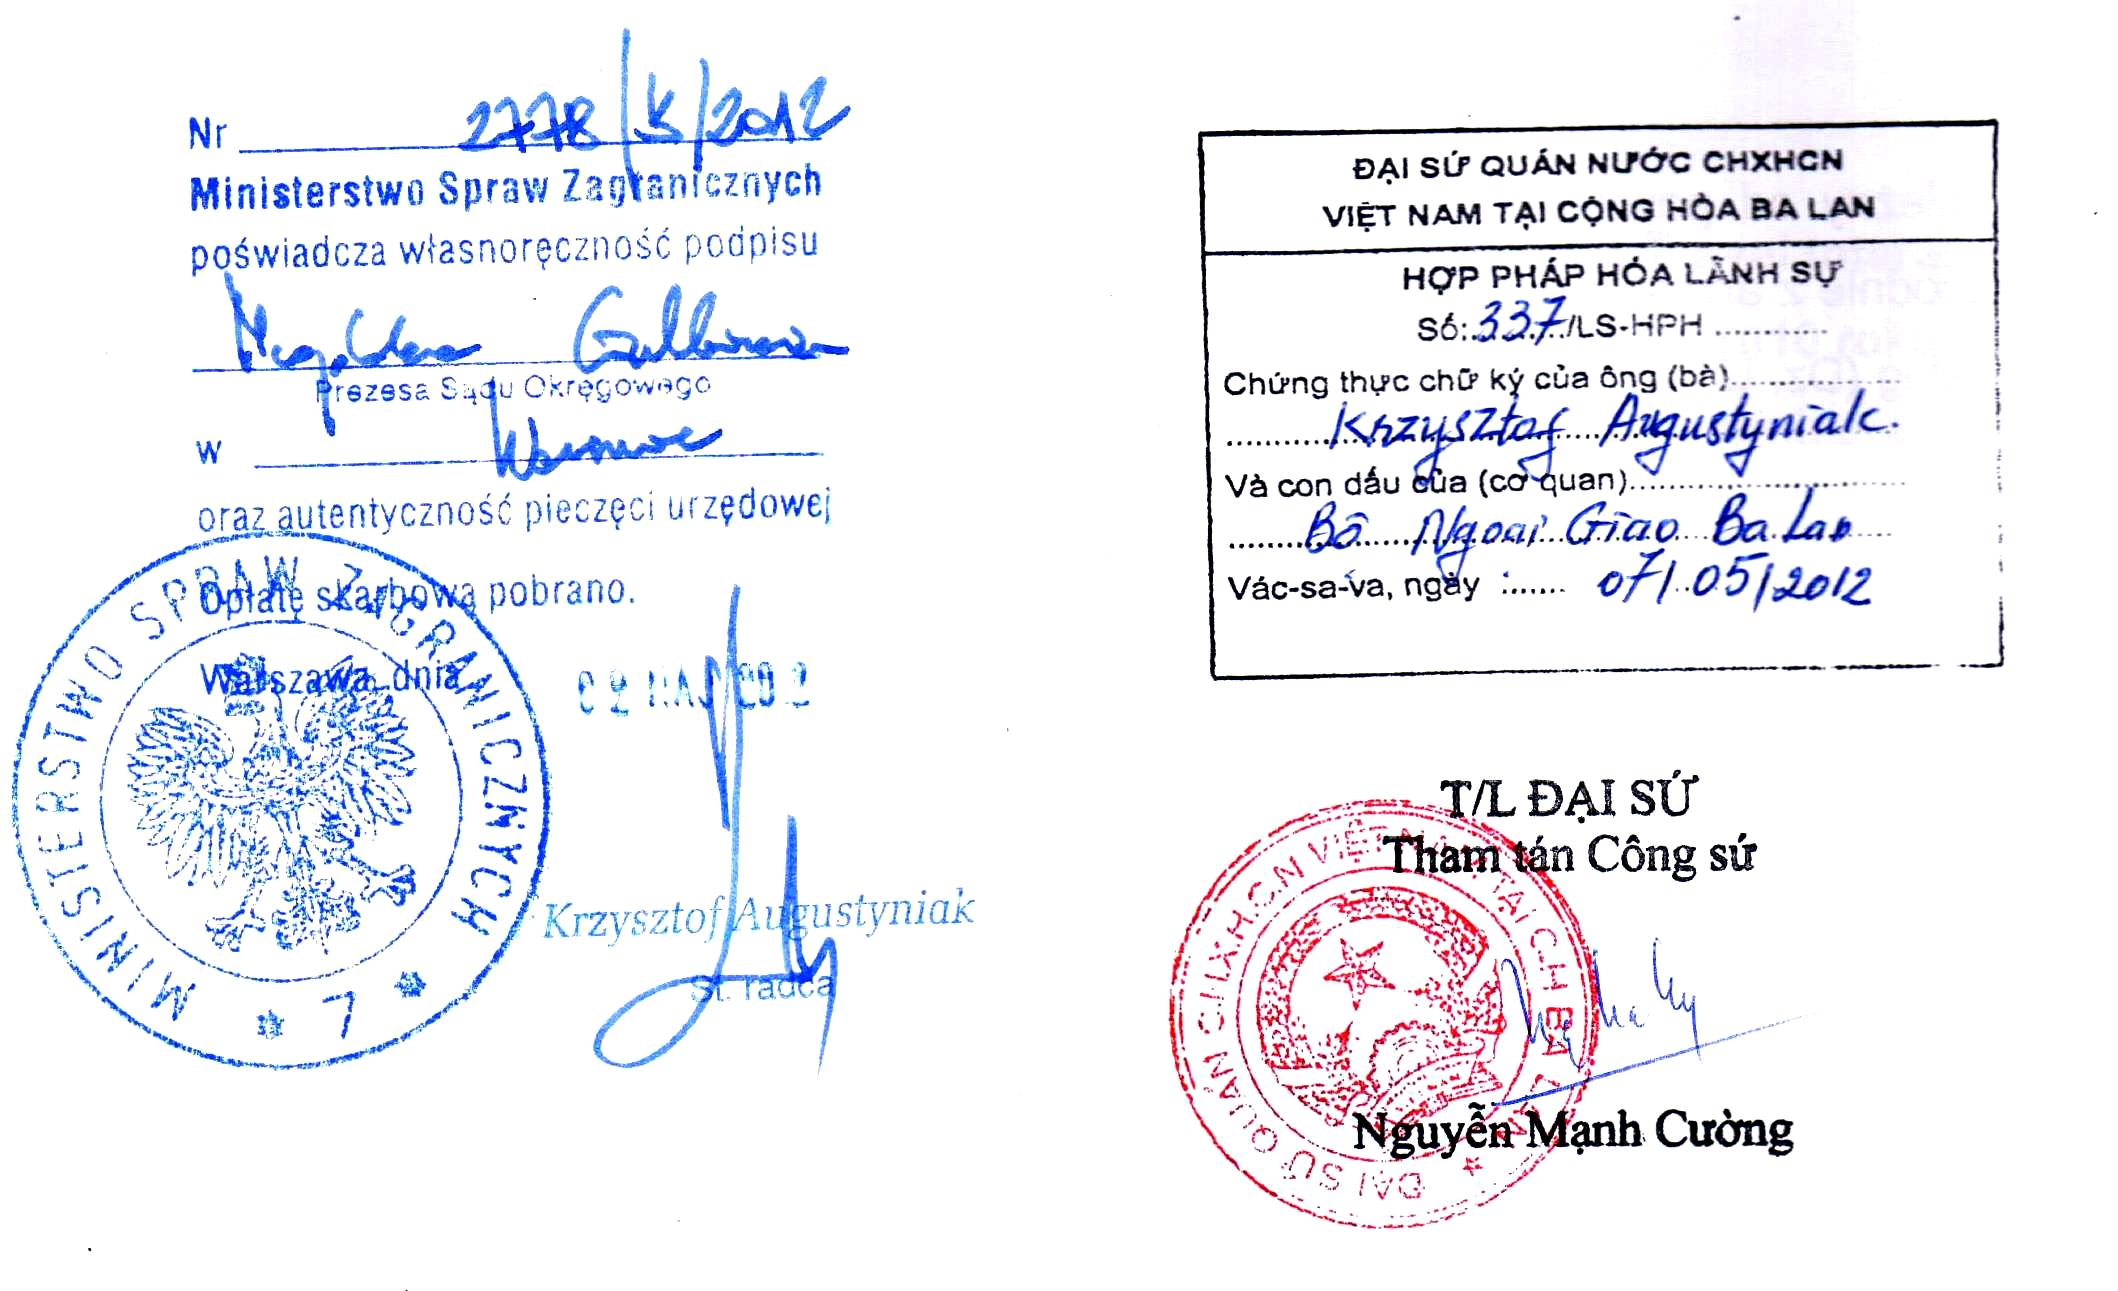 Nr 2778/K/2012
Ministerstwo Spraw Zagranicznych
poświadcza własnoręczność podpisu
Magdalena
Prezesa Sądu Okręgowego
w Warszawie
oraz autentyczność pieczęci urzędowej
Opłatę skarbową pobrano.
Warszawa, dnia 02 MAJ 2012
MINISTERSTWO SPRAW ZAGRANICZNYCH
* 7 *
Krzysztof Augustyniak
St. radca
ĐẠI SỨ QUÁN NƯỚC CHXHCN
VIỆT NAM TẠI CỘNG HÒA BA LAN
HỢP PHÁP HÓA LÃNH SỰ
Số: 337/LS-HPH ............
Chứng thực chữ ký của ông (bà)..................
Krzysztof Augustyniak.
Và con dấu của (cơ quan)..................
Bộ Ngoại Giao Ba Lan
Vác-sa-va, ngày :....... 07/05/2012
T/L ĐẠI SỨ
Tham tán Công sứ
ĐẠI SỨ QUÁN CHXHCN VIỆT NAM TẠI CH BA LAN
Nguyễn Mạnh Cường